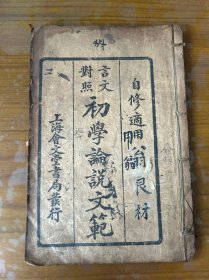 自修適用
言文
對照
初學論說文範
上海會文堂書局發行